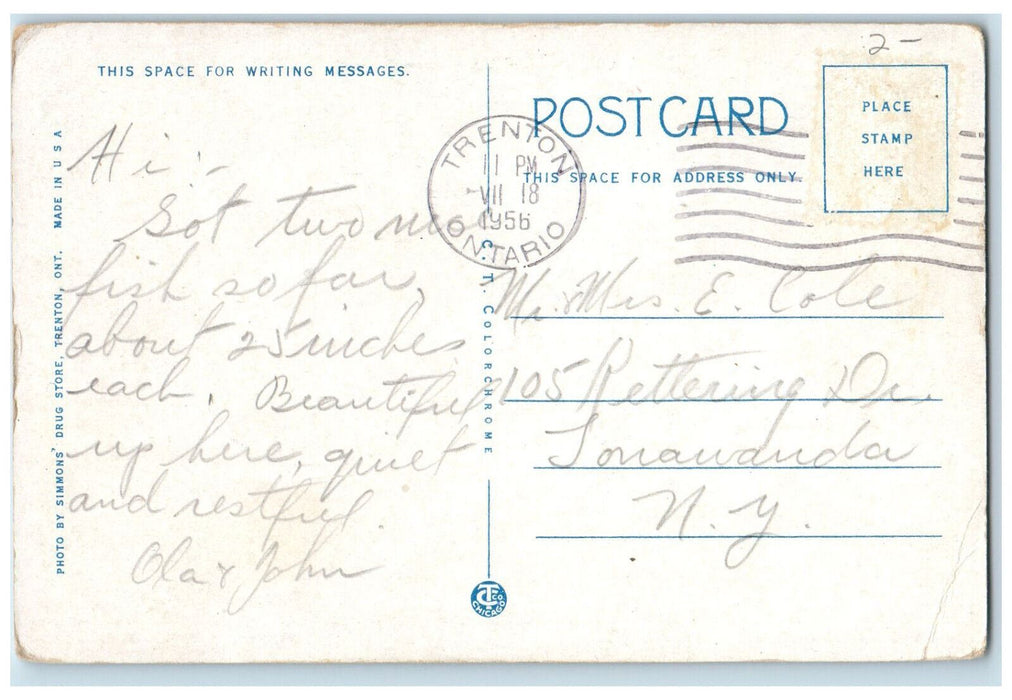 2-
THIS SPACE FOR WRITING MESSAGES.
Hi :-
Got two
fish so far,
about 25 inches
each. Beautiful
up here, quiet
and restful.
Ola & John
PHOTO BY SIMMONS' DRUG STORE, TRENTON, ONT. MADE IN U S A
C. T. COLORCHROME
CTCO. CHICAGO
POST CARD
THIS SPACE FOR ADDRESS ONLY.
PLACE
STAMP
HERE
TRENTON
11 PM
VII 18
1956
ONTARIO
Mr. & Mrs. E. Cole
105 Kettering Dr.
Tonawanda
N. Y.